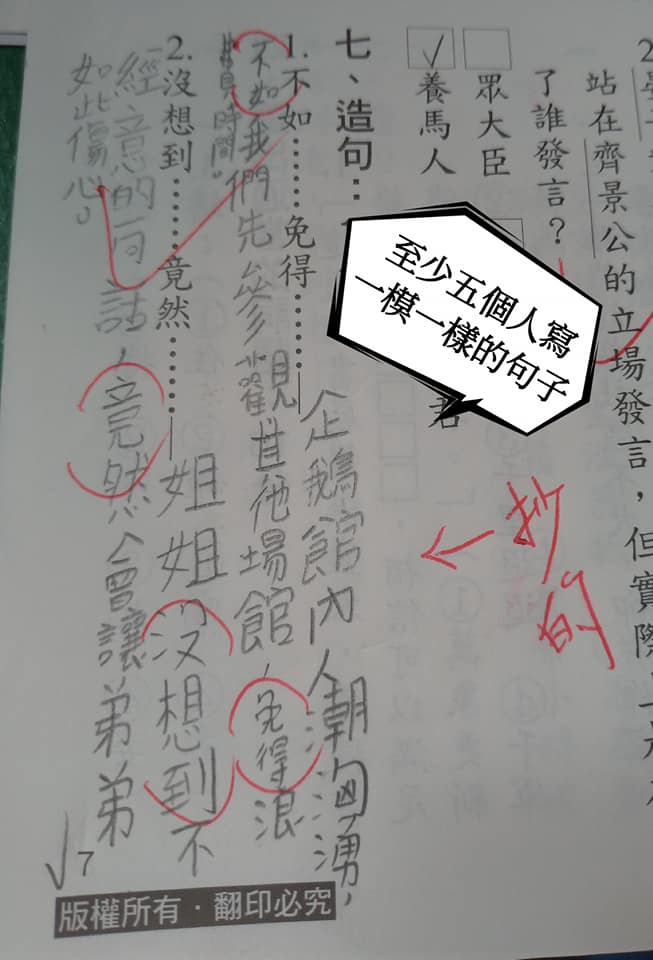 站在齊景公的立場發言，但實際
了誰發言？
眾大臣
✓養馬人
君
至少五個人寫
一模一樣的句子
抄的
←
七、造句：
1.不如……免得……
企鵝館內人潮洶湧，
不如我們先參觀其他場館，免得浪
費時間。
2.沒想到……竟然……
姐姐沒想到不
經意的一句話，竟然會讓弟弟
如此傷心。
7
版權所有．翻印必究